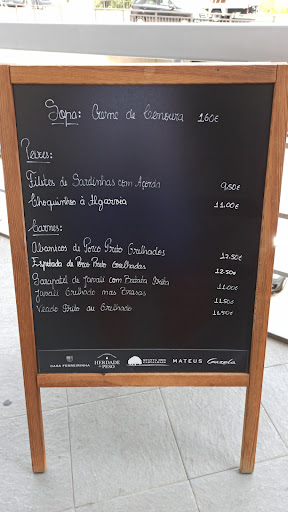 Sopa: Creme de Cenoura 1.60€
Peixes:
Filetes de Sardinhas com Açorda 9,50€
Choquinhos à Algarvia 11,00€
Carnes:
Abanicos de Porco Preto Grelhados 12.50€
Espetada de Porco Preto Grelhadas 12.50€
Sarapatel de Javali com Batata Frita 11.00€
Javali Grelhado nas Brasas 11.50€
Veado Frito ou Grelhado 11.50€
CASA FERREIRINHA
HERDADE DO PESO
MATEUS
Gazela